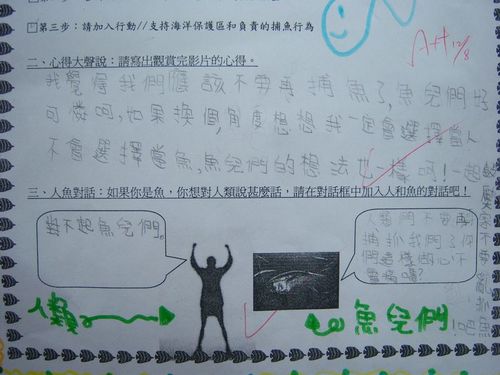 □第三步：請加入行動//支持海洋保護區和負責的捕魚行為
A++ 12/8
二、心得大聲說：請寫出觀賞完影片的心得。
我覺得我們應該不要再捕魚了,魚兒們好
可憐呵,如果換個角度想想我一定會選擇當人
不會選擇當魚,魚兒們的想法也一樣呵!一起
三、人魚對話：如果你是魚，你想對人類說甚麼話，請在對話框中加入人和魚的對話吧！
對不起魚兒們。
人類們不要再
捕抓我們了你
們這樣做心不
會痛嗎?
人類
魚兒們